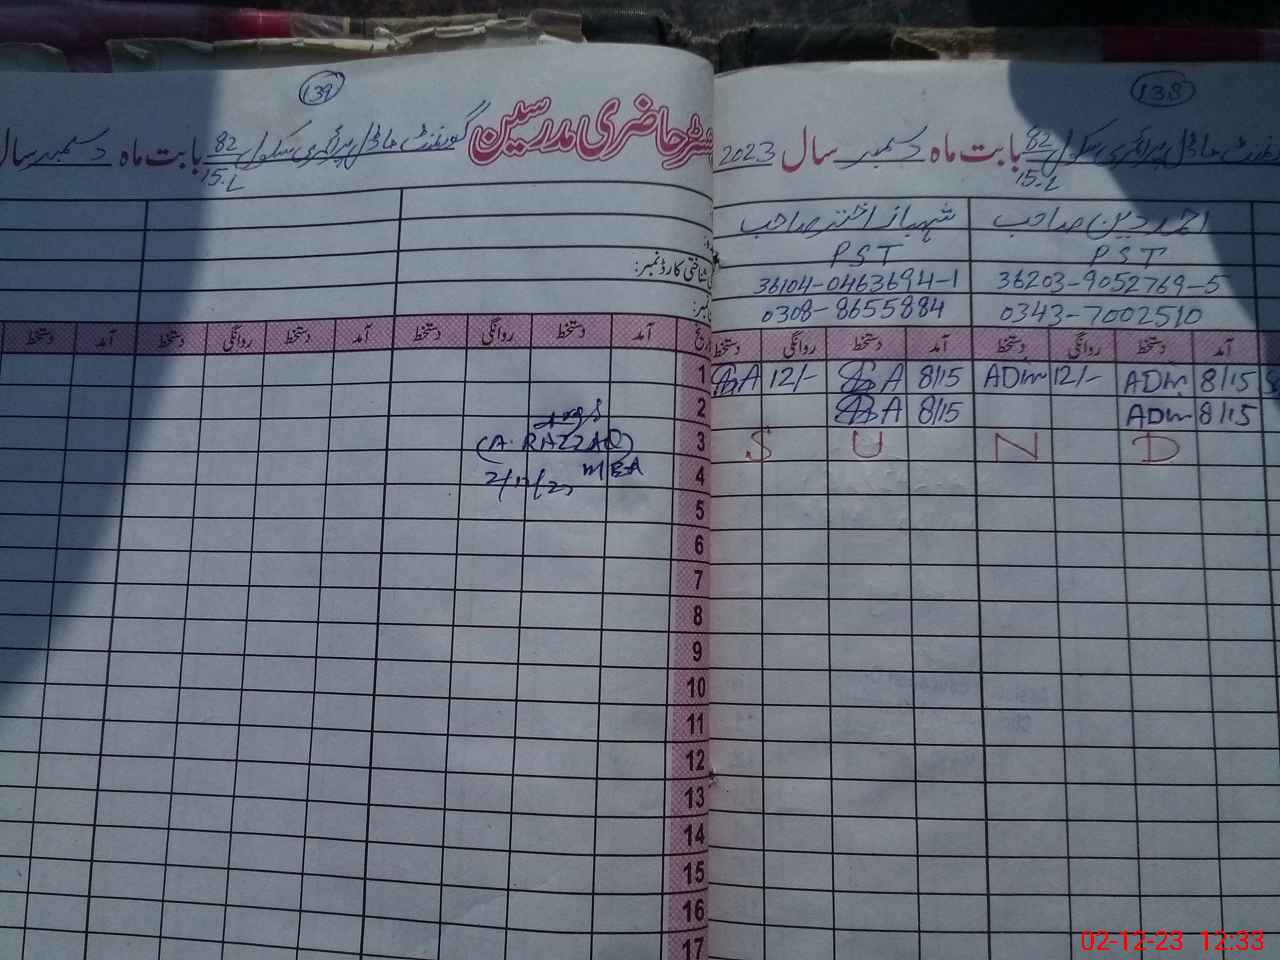 139
رجسٹر حاضری مدرسین گورنمنٹ ماڈل پرائمری سکول 82/15.L بابت ماہ دسمبر سال
شناختی کارڈ نمبر:
آمد دستخط روانگی دستخط آمد دستخط روانگی دستخط آمد دستخط
(A. RAZZAQ)
138
گورنمنٹ ماڈل پرائمری سکول 82/15.L بابت ماہ دسمبر سال 2023
احمد حسین صاحب شہباز اختر صاحب
PST PST
36203-9052769-5 36104-0463694-1
0343-7002510 0308-8655884
آمد دستخط روانگی دستخط آمد دستخط روانگی دستخط
تاریخ
1 SA 12/- SA 8/15 ADM 12/- ADM 8/15
2 SA 8/15 ADM 8/15
3 S U N D
4
5
6
7
8
9
10
11
12
13
14
15
16
17
02-12-23 12:33